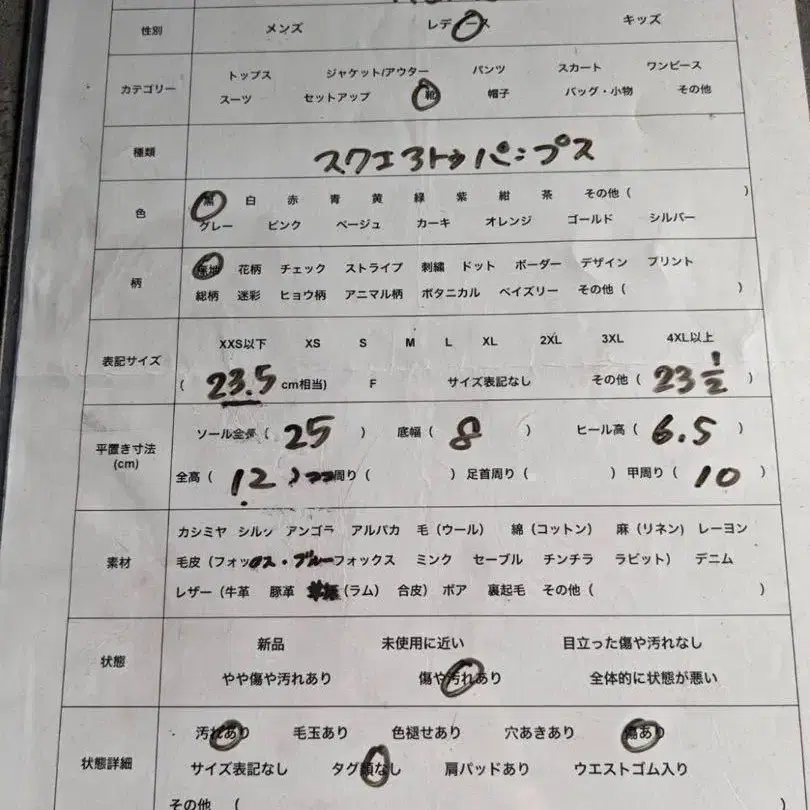 性別 メンズ レディース キッズ
カテゴリー
トップス ジャケット/アウター パンツ スカート ワンピース
スーツ セットアップ 靴 帽子 バッグ・小物 その他
種類 スクエアトゥパンプス
色
黒 白 赤 青 黄 緑 紫 紺 茶 その他 ( )
グレー ピンク ベージュ カーキ オレンジ ゴールド シルバー
柄
無地 花柄 チェック ストライプ 刺繍 ドット ボーダー デザイン プリント
総柄 迷彩 ヒョウ柄 アニマル柄 ボタニカル ペイズリー その他 ( )
表記サイズ
XXS以下 XS S M L XL 2XL 3XL 4XL以上
( 23.5 cm相当) F サイズ表記なし その他 ( 23 1/2 )
平置き寸法
(cm)
ソール全長 ( 25 ) 底幅 ( 8 ) ヒール高 ( 6.5 )
全高 ( 12 ) 周り ( ) 足首周り ( ) 甲周り ( 10 )
素材
カシミヤ シルク アンゴラ アルパカ 毛 (ウール) 綿 (コットン) 麻 (リネン) レーヨン
毛皮 (フォックス・ブルーフォックス ミンク セーブル チンチラ ラビット) デニム
レザー (牛革 豚革 (ラム) 合皮) ボア 裏起毛 その他 ( )
状態
新品 未使用に近い 目立った傷や汚れなし
やや傷や汚れあり 傷や汚れあり 全体的に状態が悪い
状態詳細
汚れあり 毛玉あり 色褪せあり 穴あきあり 傷あり
サイズ表記なし タグ類なし 肩パッドあり ウエストゴム入り
その他 (